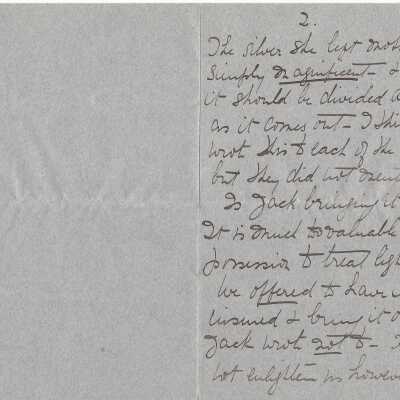 2.
The silver she left Mot
simply magnificent - &
it should be divided a
as it comes out - I thi
wrote this to each of the
but they did not men
Is Jack bringing it
It is much to valuable
possession to treat lig
We offered to have i
insured & bring it o
Jack wrote not to -
not enlighten us howeve